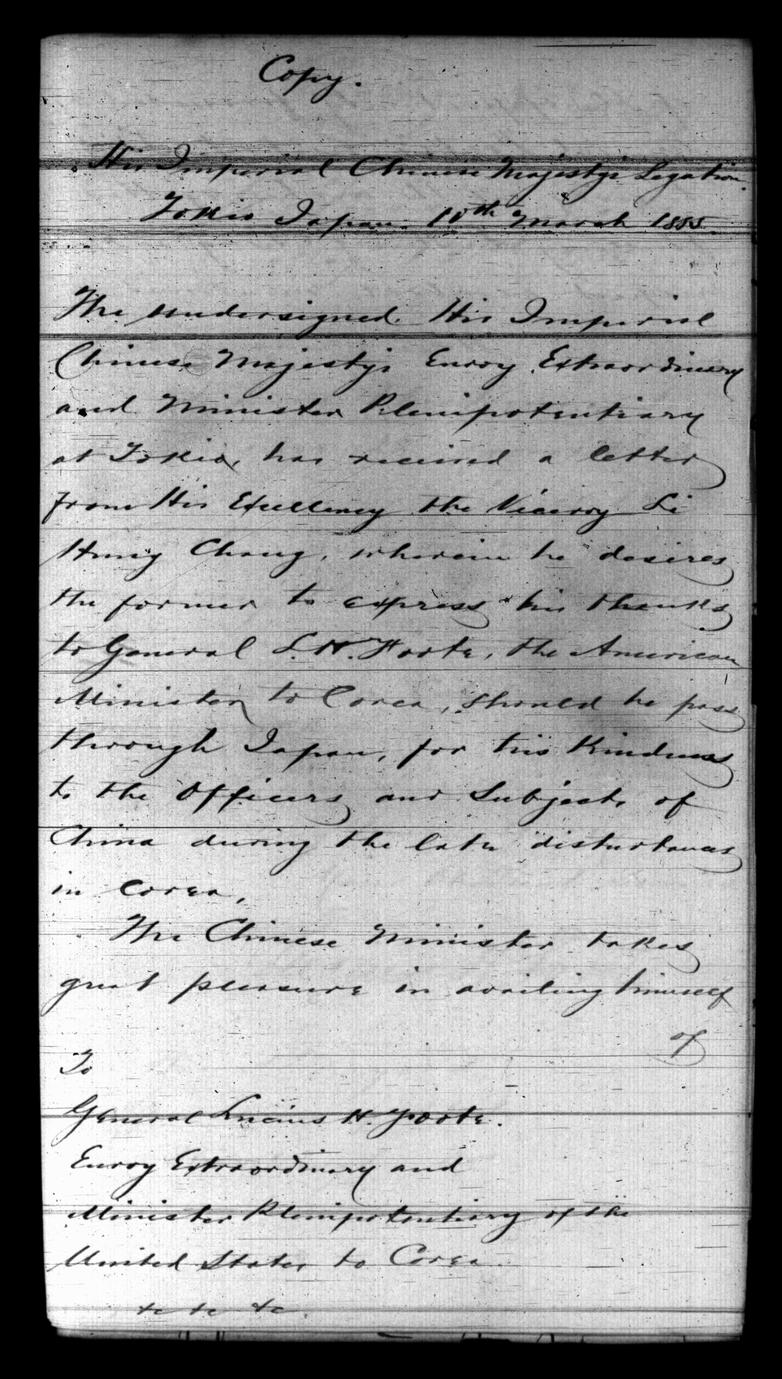 Copy.
His Imperial Chinese Majesty's Legation.
Tokio Japan. 10th March 1885.
The undersigned His Imperial
Chinese Majesty's Envoy Extraordinary
and Minister Plenipotentiary
at Tokio, has received a letter
from His Excellency the Viceroy Li
Hung Chang, wherein he desires
the former to express his thanks
to General L. H. Foote, the American
Minister to Corea, should he pass
through Japan, for his kindness
to the Officers and Subjects of
China during the late disturbances
in Corea,
The Chinese Minister takes
great pleasure in availing himself
of
To
General Lucius H. Foote.
Envoy Extraordinary and
Minister Plenipotentiary of the
United States to Corea.
&c &c &c.